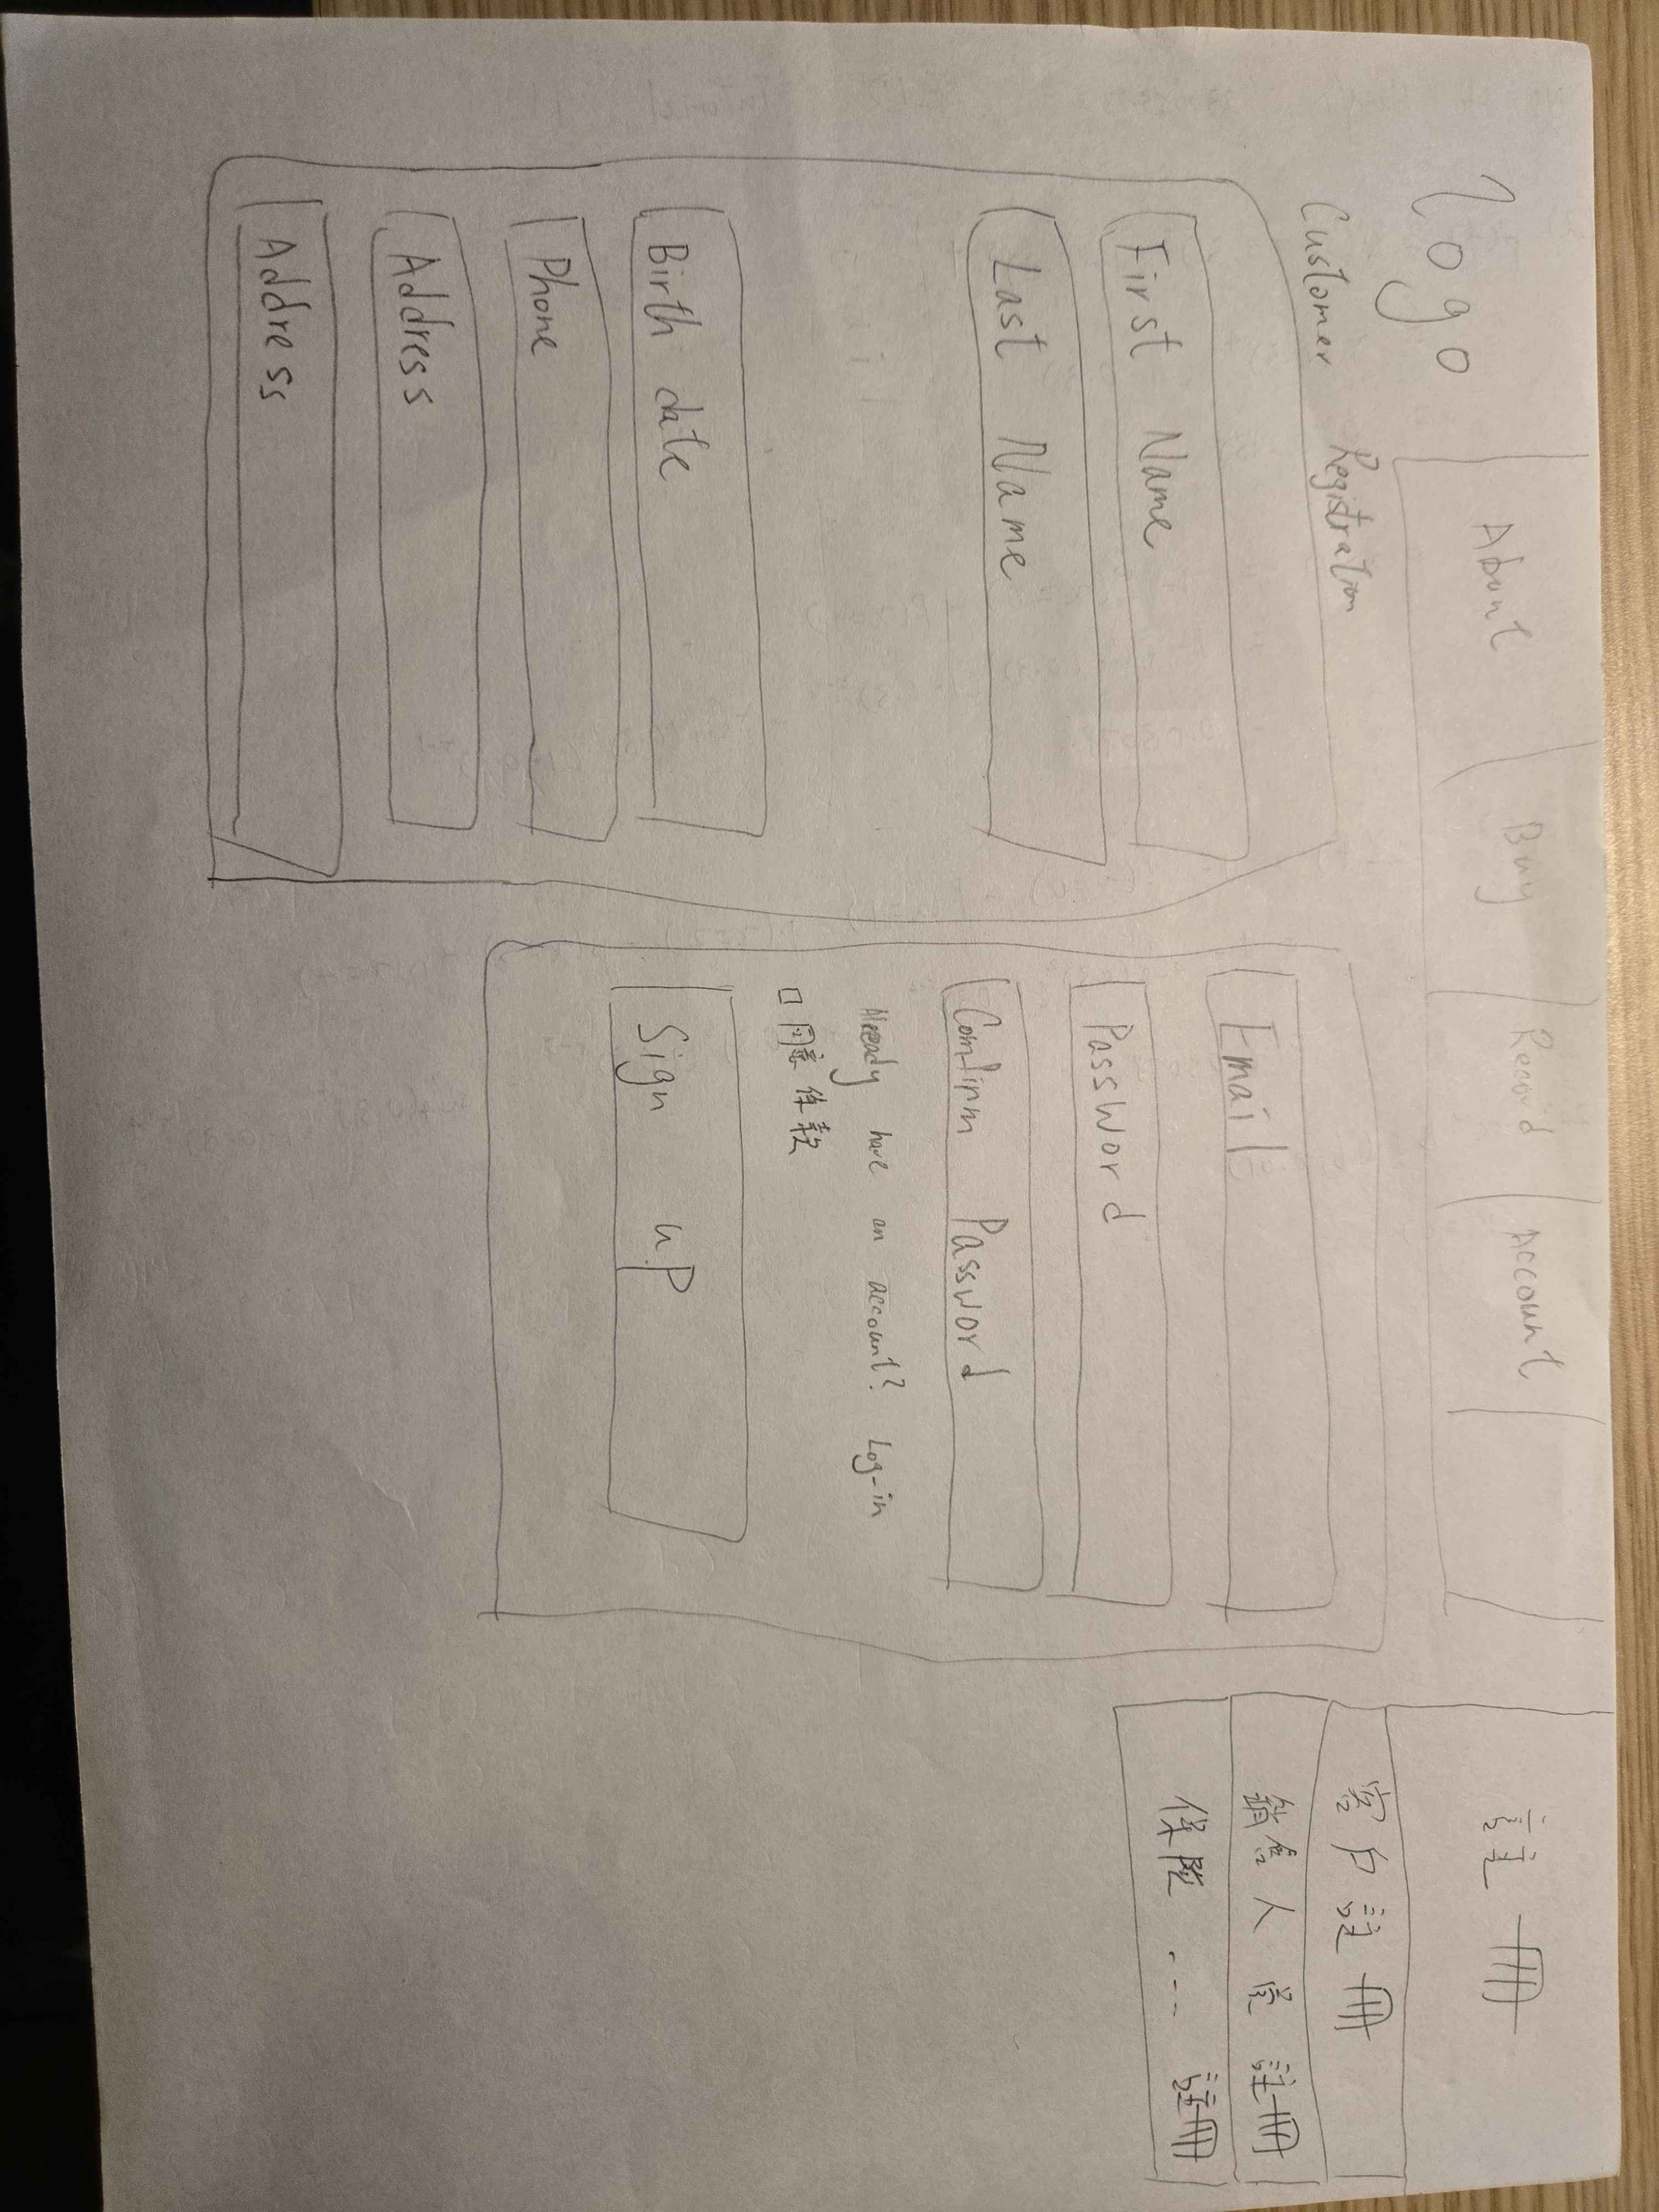 logo
About
Buy
Record
Account
註冊
客户註冊
銷售人員註冊
保險 ... 註冊
Customer Registration
First Name
Last Name
Birth date
Phone
Address
Address
Email
Password
Comfirm Password
Already have an account? Log-in
同意條款
Sign up